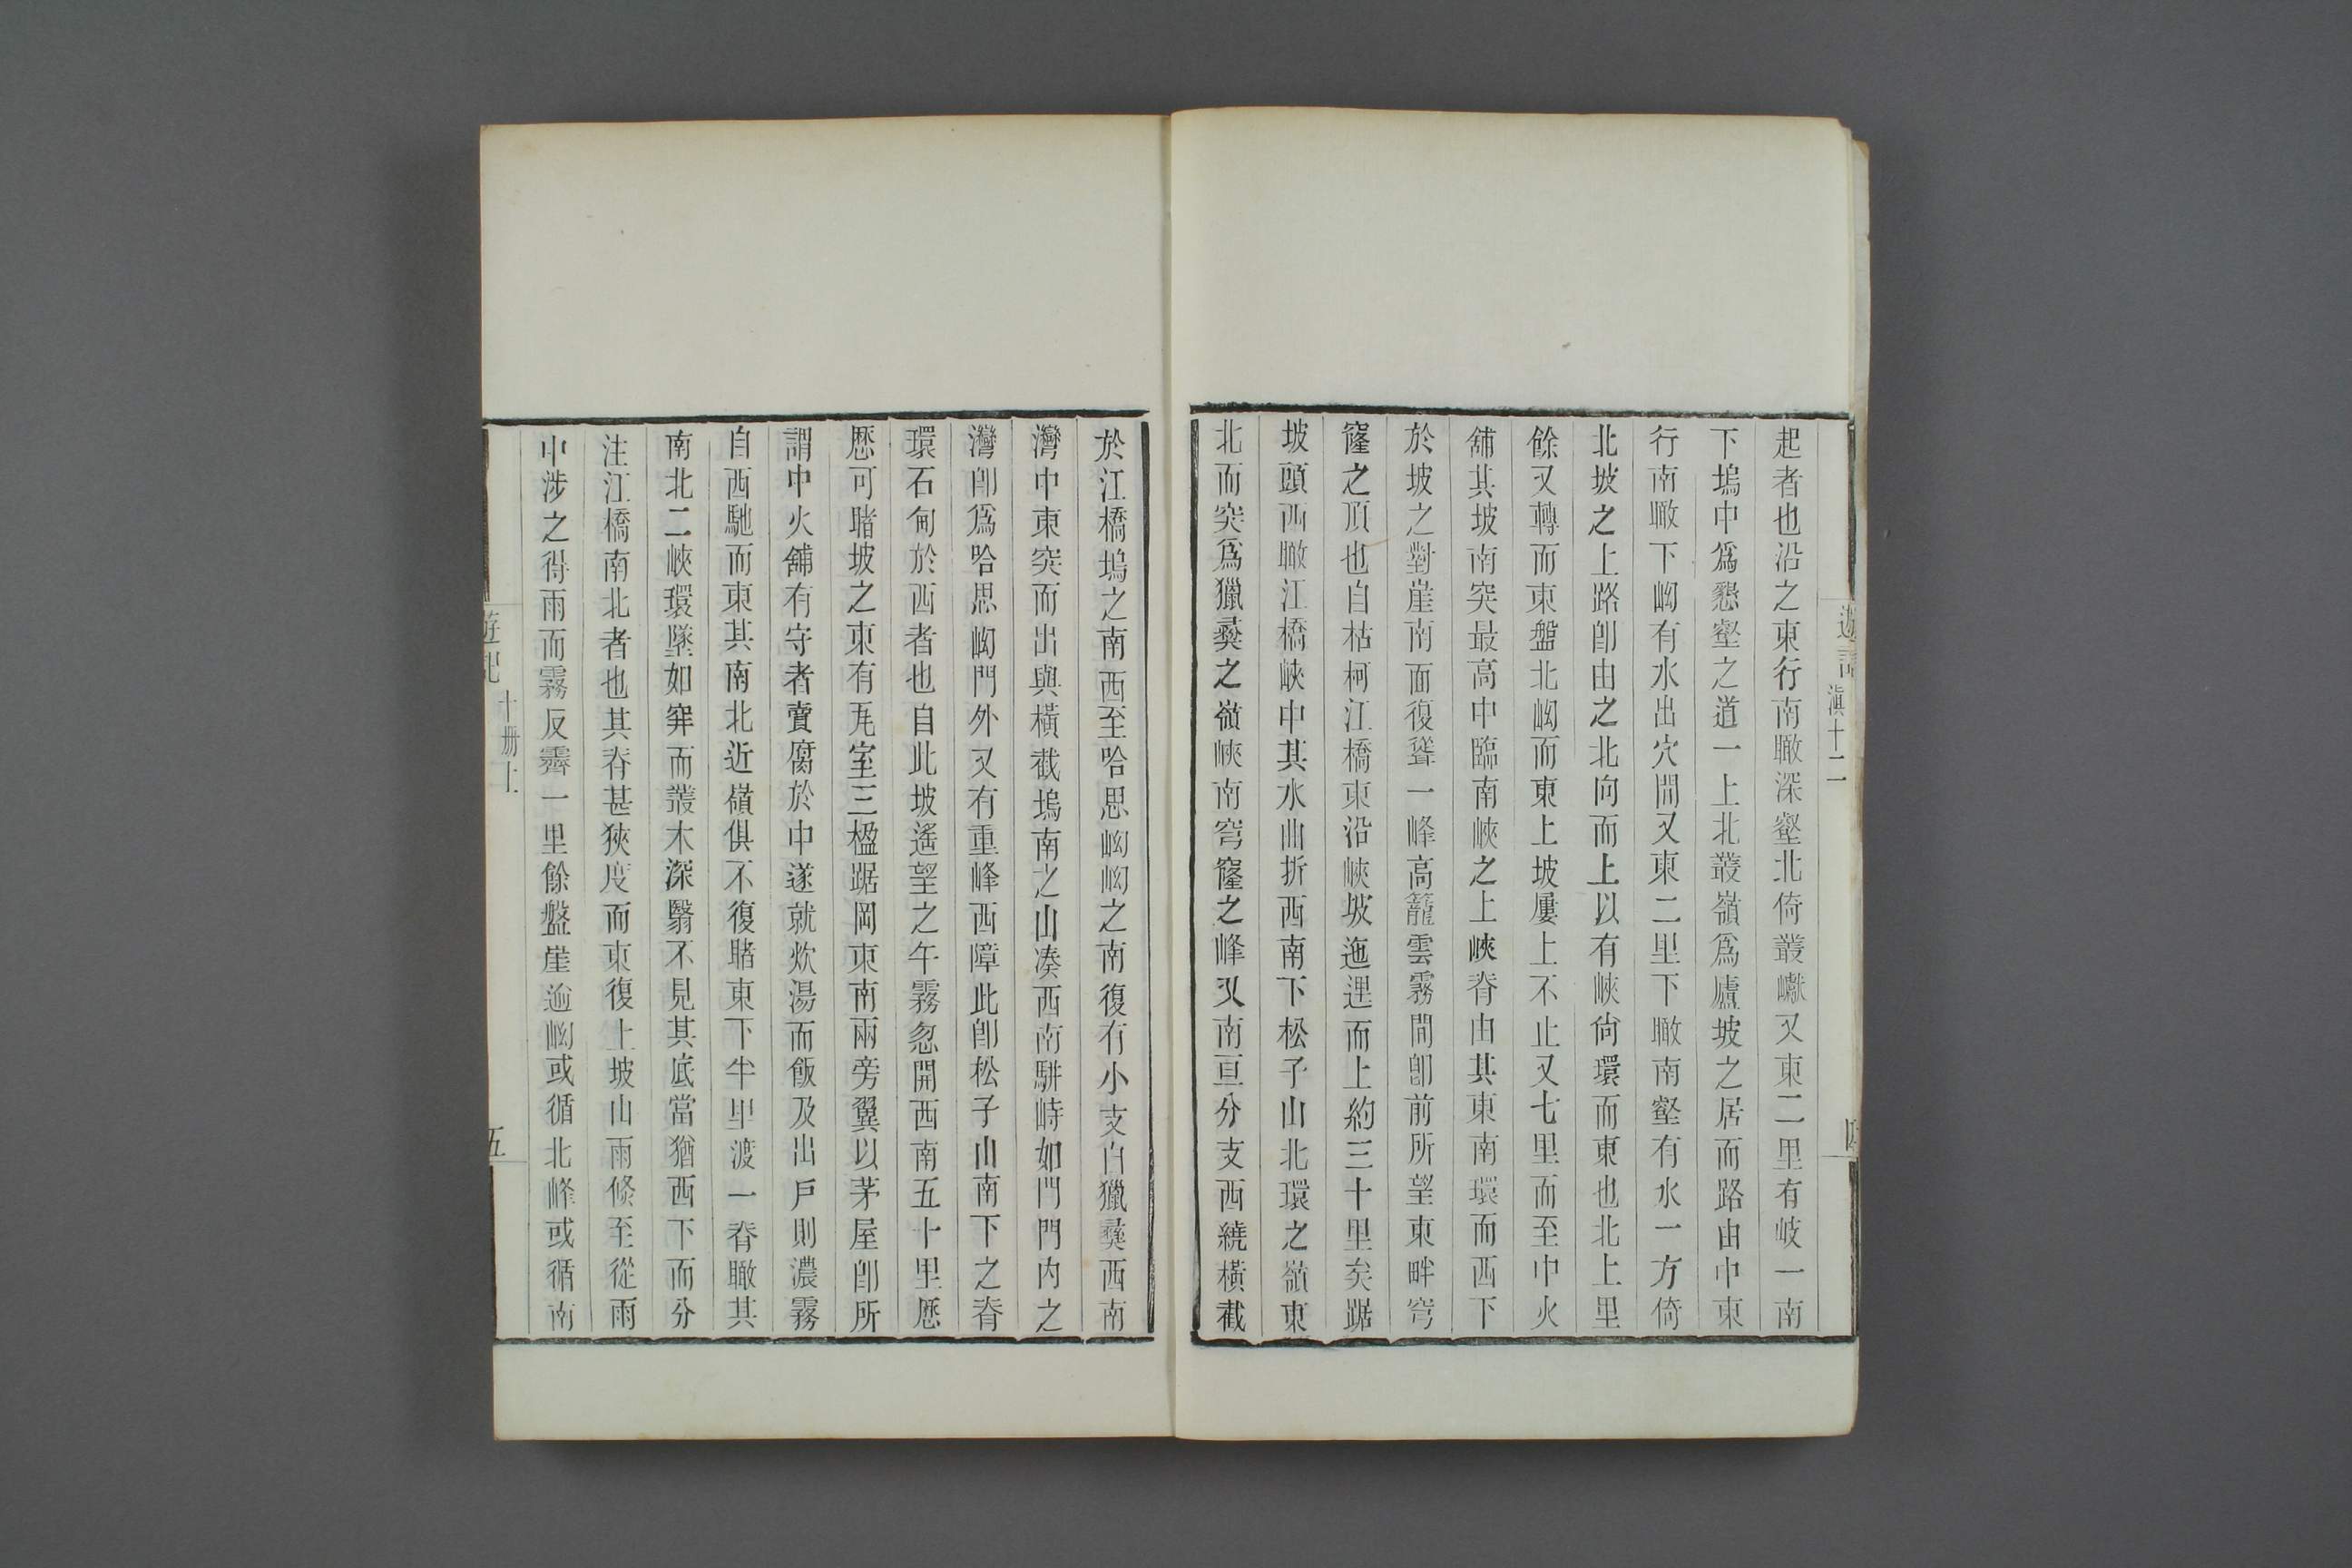 遊記 滇十二
起者也沿之東行南瞰深壑北倚叢巘又東二里有岐一南
下塢中爲懇壑之道一上北叢嶺爲廬坡之居而路由中東
行南瞰下㘭有水出穴間又東二里下瞰南壑有水一方倚
北坡之上路卽由之北向而上以有峽尙環而東也北上里
餘又轉而東盤北㘭而東上坡屢上不止又七里而至中火
舖其坡南突最高中臨南峽之上峽脊由其東南環而西下
於坡之對崖南面復聳一峰高籠雲霧間卽前所望東畔穹
窿之頂也自枯柯江橋東沿峽坡迤逦而上約三十里矣踞
坡頭西瞰江橋峽中其水曲折西南下松子山北環之嶺東
北而突爲獵彝之嶺峽南穹窿之峰又南亘分支西繞橫截
於江橋塢之南西至哈思㘭㘭之南復有小支自獵彝西南
灣中東突而出與橫截塢南之山湊西南駢峙如門門内之
灣卽爲哈思㘭門外又有重峰西障此卽松子山南下之脊
環石甸於西者也自此坡遙望之午霧忽開西南五十里歷
歷可睹坡之東有瓦室三楹踞岡東南兩旁翼以茅屋卽所
謂中火舖有守者賣腐於中遂就炊湯而飯及出戶則濃霧
自西馳而東其南北近嶺俱不復睹東下半里渡一脊瞰其
南北二峽環墜如穽而叢木深翳不見其底當猶西下而分
注江橋南北者也其脊甚狹度而東復上坡山雨倐至從雨
中涉之得雨而霧反霽一里餘盤崖逾㘭或循北峰或循南
遊記 十册上 五